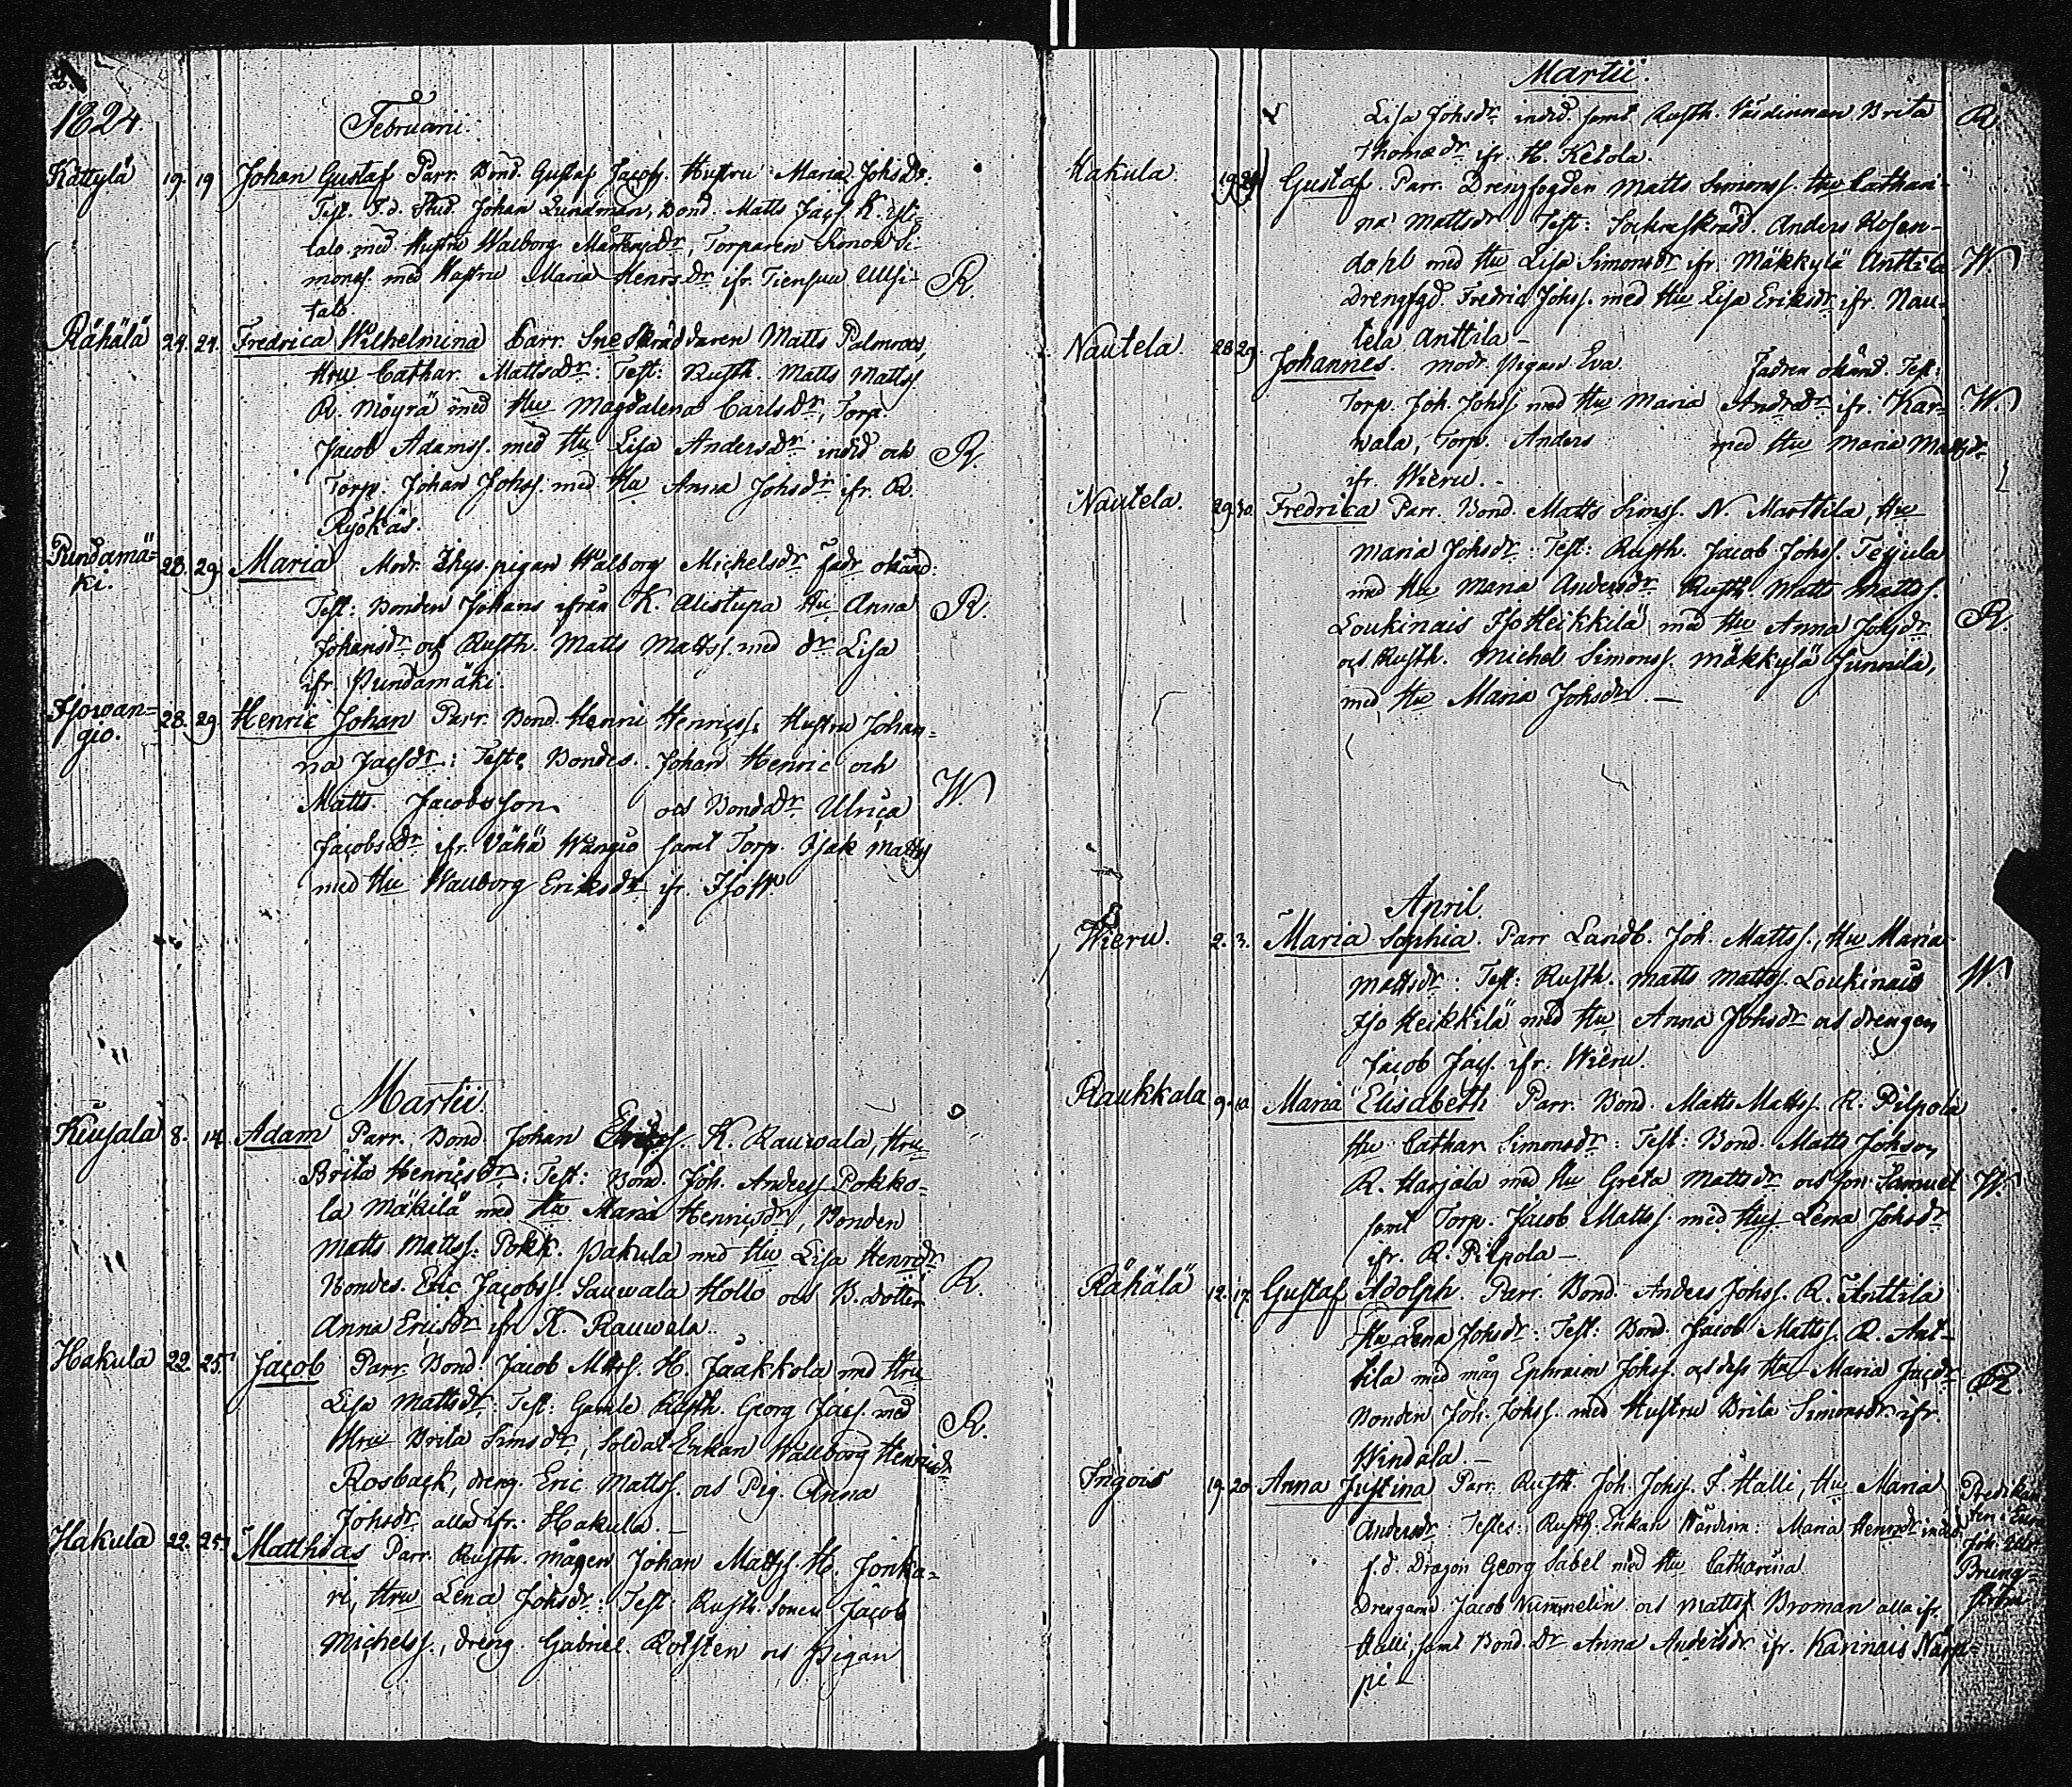 1824.
Februarii.
Kättylä 19. 19 Johan Gustaf Parr. Bond. Gustaf Jacobss. Hustru Maria Johsdr.
Test. F.d. Stud. Johan Lundman, Bond. Matts Jacs. K.
talo med Hustru Walborg Mårtensdr, Torparen Simon Si-
monss. med Hustru Maria Henrsdr ifr. Tiensuu Uusi- R.
talo
Råhälä 24. 24. Fredrica Wilhelmina Parr. Skräddaren Matts Palmroos,
Hru Cathar. Mattsdr: Test: Rusth. Matts Mattss
R. Möyrä med Hu Magdalena Carlsdr, Torp.
Jacob Adamss. med Hu Lisa Andersdr indid och R.
Torp. Johan Johss. med Hu Anna Johsdr ifr. R.
Ryökäs.
Pundamä-
ki. 28. 29 Maria Modr. Inhys. pigan Walborg Michelsdr fadr. okänd.
Test: Bonden Johans ifrån K. Alistupa Hu Anna R.
Johansdr och Rusth. Matts Matss. med dr Lisa
ifr Pundamäki.
Isowan-
gio. 28. 29. Henric Johan Parr. Bond. Henric Henricss. Hustru Johan-
na Jacsdr: Teste Bondes. Johan Henric och
Matts Jacobsson och Bondedr Ulrica W.
Jacobsdr ifr. Vähä Wangio samt Torp. Isak Mattss
med Hu Wallborg Eriksdr ifr. IsoW.
Martii.
Keusala 8. 14. Adam Parr. Bond Johan K. Rauwala, Hru
Brita Henricsdr: Test: Bond. Joh. Anderss Pokko-
la Mäkilä med Hu Maria Henricsdr, Bonden
Matts Mattss. Pokk. Pakula med Hu Lisa Henrsdr
Bondes. Eric Jacobss. Sauwala Hollo och B. dotter R.
Anna Ericsdr ifr K. Rauwala.
Hakula 22. 25. Jacob Parr. Bond Jacob Mattss. H. Jaakkola med Hru
Lisa Mattsdr: Test: Gamle Rusth. Georg Jacs. med
Hru Brita Simsdr, Soldat Enkan Wallborg Henricsdr R.
Rosback, dreng. Eric Mattss. och Pig. Anna
Johsdr alla ifr. Hakula.
Hakula 22. 25. Matthias Parr. Rusth. mågen Johan Mattss H. Jonka-
ri, Hru Lena Johsdr: Test: Rusth. Sonen Jacob
Michelss., dreng. Gabriel Rolsten och Pigan
Martii.
Lisa Johsdr indid. samt Rusth. Värdinnan Brita R
Thomædr ifr. H. Ketola.
Hakula. Gustaf. Parr. Drengfogden Matts Simonss. Hu Cathari-
na Mattsdr. Test: Sockneskrädd. Anders Rosen-
dahl med Hu Lisa Simonsdr ifr. Mäkkylä Anttila W.
drengfgd. Fredric Johss. med Hu Lisa Eriksdr ifr. Nau-
tela Anttila
Nautela. 28 29. Johannes. modr. Pigan Eva Fadren okänd. Test:
Torp. Joh. Johss med Hu Maria Andrsdr ifr. Kar- W.
wala, Torp. Anders med Hu Maria Mattsdr
ifr. Wieru.
Nautela. 29. 30. Fredrica Parr. Bond. Matts Simss. N. Marttila, Hu
Maria Johsdr: Test: Rusth. Jacob Johss. Teijula
med Hu Maria Andersdr Rusth Matts Mattss.
Loukinais IsoHeikkilä med Hu Anna Johsdr R.
och Rusth. Michel Simonss. Mäkkylä Junnila,
med Hu Maria Johsdr.
April.
Wieru. 2. 3. Maria Sophia. Parr Landb. Joh. Mattss., Hu Maria
Mattsdr: Test: Rusth. Matts Mattss. Loukinais W.
Iso Heikkilä med Hu Anna Johsdr och drengen
Jacob Jacs. ifr. Wieru.
Raukkala 9. 10. Maria Elisabeth Parr. Bond. Matts Mattss. R. Pilpola
Hu Cathar Simonsdr: Test: Bond. Matts Johsson
R. Harjala med Hu Greta Mattsdr och son Samuel W.
samt Torp. Jacob Mattss. med Hus Lena Johsdr
ifr. R. Pilpola
Råhälä 12. 17. Gustaf Adolph Parr. Bond. Anders Johss. R. Anttila
Hu Lena Johsdr: Test: Bond. Jacob Mattss. R. Ant-
tila med måg Ephraim Johss. och dess Hu Maria Jacsdr R.
Bonden Joh. Johss. med Hustru Brita Simonsdr ifr.
Windala.
Ingois 19. 20. Anna Justina Parr. Rusth. Joh. Johss. I. Halli, Hu Maria
Andersdr: Testes: Rusth. Enkan Värdinn: Maria Henrsdr indid.
f.d. Dragon Georg Sabel med Hu Catharina
Drengarne Jacob Nummelin och Matts Broman alla ifr.
Halli, samt Bond. Dr Anna Andersdr ifr. Karinais Närp-
pi